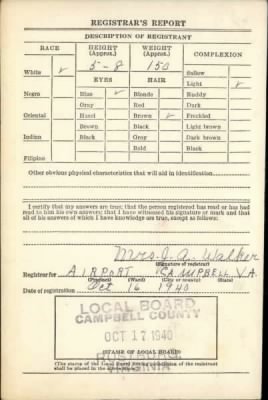 REGISTRAR'S REPORT
DESCRIPTION OF REGISTRANT
RACE HEIGHT (Approx.) WEIGHT (Approx.) COMPLEXION
White ✓ 5-8 150 Sallow
EYES HAIR Light ✓
Negro Blue ✓ Blonde Ruddy
Gray Red Dark
Oriental Hazel Brown ✓ Freckled
Brown Black Light brown
Indian Black Gray Dark brown
Bald Black
Filipino
Other obvious physical characteristics that will aid in identification
I certify that my answers are true; that the person registered has read or has had
read to him his own answers; that I have witnessed his signature or mark and that
all of his answers of which I have knowledge are true, except as follows:
Mrs. J. A. Walker
(Signature of registrar)
Registrar for AIRPORT CAMPBELL VA.
(Precinct) (Ward) (City or county) (State)
Date of registration Oct 16 1940
LOCAL BOARD
CAMPBELL COUNTY
OCT 17 1940
RUSTBURG
VIRGINIA
(STAMP OF LOCAL BOARD)
(The stamp of the Local Board having jurisdiction of the registrant
shall be placed in the above space.)